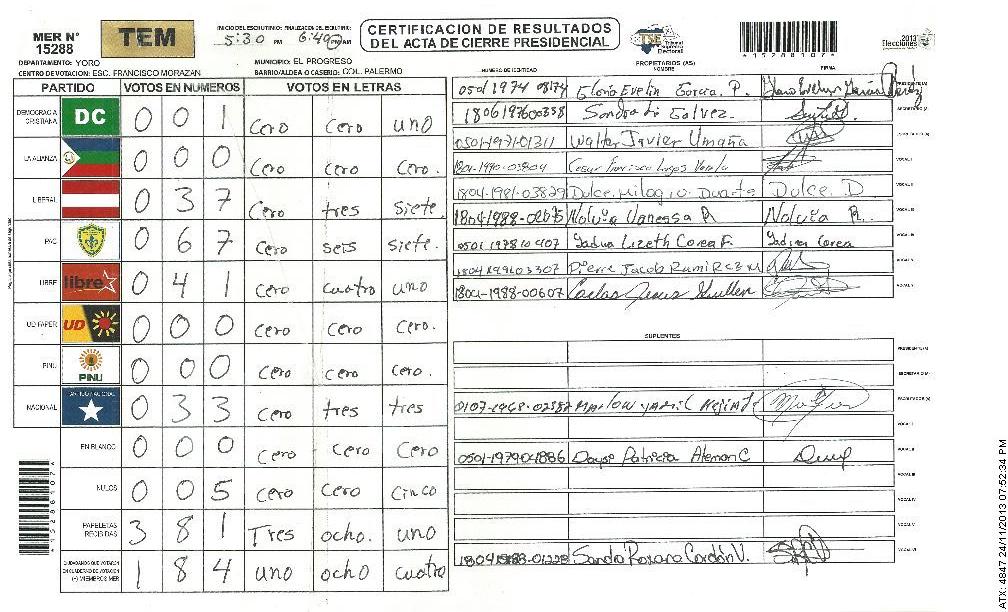 MER N° 15288
TEM
INICIO DEL ESCRUTINIO: FINALIZACION DEL ESCRUTINIO:
5:30 PM 6:49 PM
CERTIFICACION DE RESULTADOS
DEL ACTA DE CIERRE PRESIDENCIAL
TSE Tribunal Supremo Electoral
*15288107*
2013 Elecciones
DEPARTAMENTO: YORO
MUNICIPIO: EL PROGRESO
CENTRO DE VOTACION: ESC. FRANCISCO MORAZAN
BARRIO/ALDEA O CASERIO: COL. PALERMO
PARTIDO VOTOS EN NUMEROS VOTOS EN LETRAS
DEMOCRACIA CRISTIANA DC 0 0 1 Cero cero uno
LA ALIANZA 0 0 0 Cero Cero Cero.
LIBERAL 0 3 7 Cero tres siete.
PAC 0 6 7 cero seis siete.
LIBRE libre 0 4 1 cero cuatro uno
UD FAPER UD 0 0 0 cero cero cero.
PINU PINU 0 0 0 cero cero cero.
NACIONAL PARTIDO NACIONAL 0 3 3 cero tres tres
EN BLANCO 0 0 0 Cero Cero Cero
NULOS 0 0 5 cero Cero Cinco
PAPELETAS RECIBIDAS 3 8 1 Tres ocho. uno
CIUDADANOS QUE VOTARON EN CUADERNO DE VOTACION (+) MIEMBROS MER 1 8 4 uno ocho cuatro
*15288107*
PROPIETARIOS (AS)
NUMERO DE IDENTIDAD NOMBRE FIRMA
Gloria Evelin Garcia. P. PRESIDENTE(A)
Sandra Galvez SECRETARIO (A)
0501-1971-01311 Walter Javier Umaña
VOCAL I
1804-1981-03829 Dulce Milagro Duarte Dulce. D VOCAL II
Nolvia Vanessa R Nolvia R. VOCAL III
Yadira Lizeth Corea F. Yadira Corea VOCAL IV
Pierre Jacob Ramirez M VOCAL V
1804-1988-00607 Carlos Jesus
SUPLENTES
PRESIDENTE(A)
SECRETARIO (A)
0107-1968-02382 Marlow Yamil Mejia
VOCAL I
0501-197904886 Daysi Patricia Aleman C VOCAL II
VOCAL III
VOCAL IV
VOCAL V
Sandra Roxana Cordón V. VOCAL VI
ATX: 4847 24/11/2013 07:52:34 PM